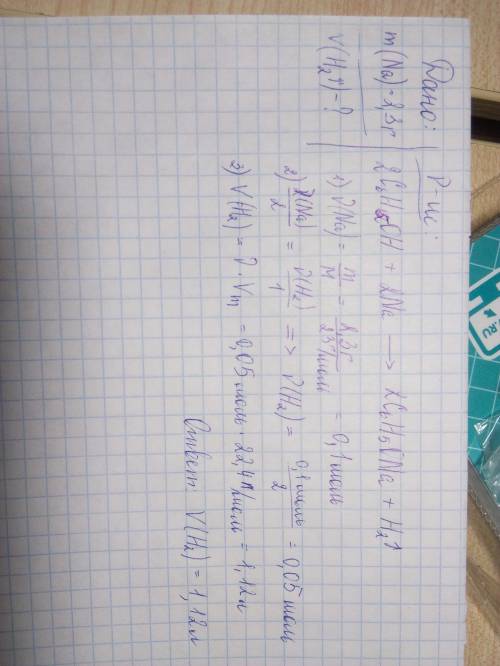 Дано:
m(Na)=2,3г
V(H₂↑)-?
Р-ие:
2C₂H₅OH + 2Na → 2C₂H₅ONa + H₂↑
1) ν(Na) = m/M = 2,3г/23г/моль = 0,1 моль
2) ν(Na)/2 = ν(H₂)/1 => ν(H₂) = 0,1 моль/2 = 0,05 моль
3) V(H₂) = ν · Vm = 0,05 моль · 22,4 л/моль = 1,12л
Ответ: V(H₂) = 1,12л